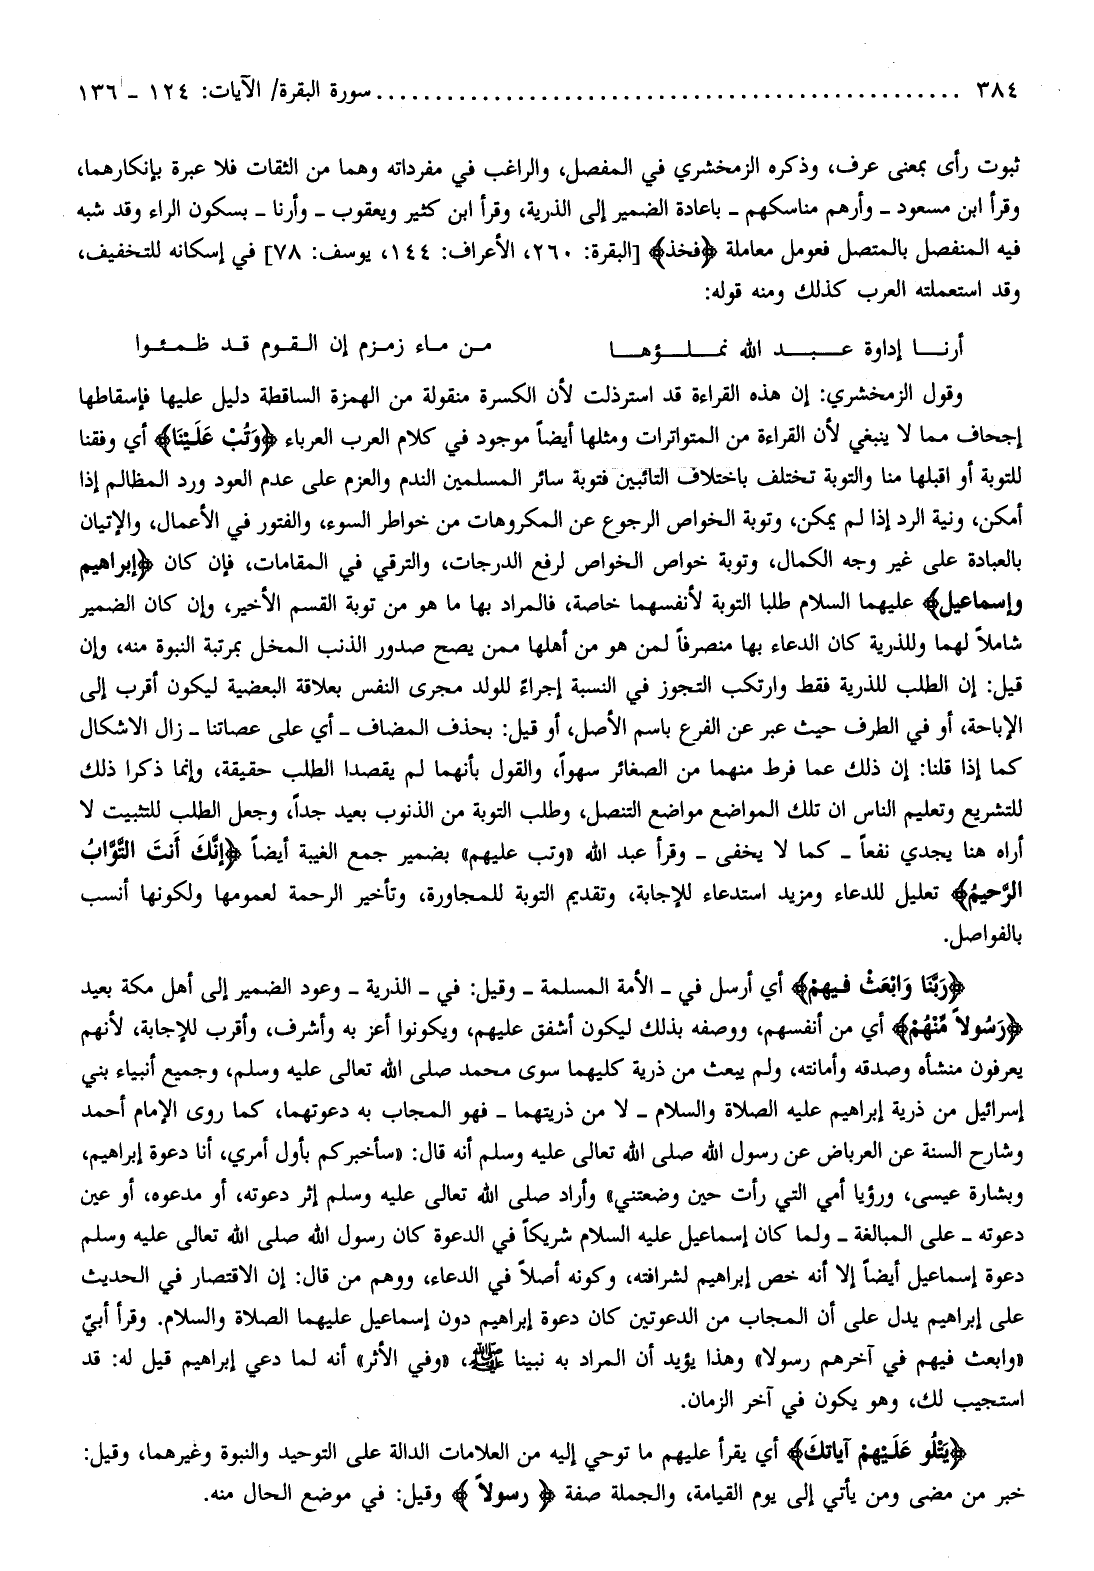 ٣٨٤ ................................................ سورة البقرة/ الآيات: ١٢٤ ـ ١٣٦
ثبوت رأى بمعنى عرف، وذكره الزمخشري في المفصل، والراغب في مفرداته وهما من الثقات فلا عبرة بإنكارهما،
وقرأ ابن مسعود ـ وأرهم مناسكهم ـ باعادة الضمير إلى الذرية، وقرأ ابن كثير ويعقوب ـ وأرنا ـ بسكون الراء وقد شبه
فيه المنفصل بالمتصل فعومل معاملة ﴿فخذ﴾ [البقرة: ٢٦٠، الأعراف: ١٤٤، يوسف: ٧٨] في إسكانه للتخفيف،
وقد استعملته العرب كذلك ومنه قوله:
أرنـا إداوة عـبـد الله نمـلـؤهـا من مـاء زمـزم إن الـقـوم قـد ظـمـئـوا
وقول الزمخشري: إن هذه القراءة قد استرذلت لأن الكسرة منقولة من الهمزة الساقطة دليل عليها فإسقاطها
إجحاف مما لا ينبغي لأن القراءة من المتواترات ومثلها أيضاً موجود في كلام العرب العرباء ﴿وَتُبْ عَلَيْنَا﴾ أي وفقنا
للتوبة أو اقبلها منا والتوبة تختلف باختلاف التائبين فتوبة سائر المسلمين الندم والعزم على عدم العود ورد المظالم إذا
أمكن، ونية الرد إذا لم يمكن، وتوبة الخواص الرجوع عن المكروهات من خواطر السوء، والفتور في الأعمال، والإتيان
بالعبادة على غير وجه الكمال، وتوبة خواص الخواص لرفع الدرجات، والترقي في المقامات، فإن كان ﴿إبراهيم
وإسماعيل﴾ عليهما السلام طلبا التوبة لأنفسهما خاصة، فالمراد بها ما هو من توبة القسم الأخير، وإن كان الضمير
شاملاً لهما وللذرية كان الدعاء بها منصرفاً لمن هو من أهلها ممن يصح صدور الذنب المخل بمرتبة النبوة منه، وإن
قيل: إن الطلب للذرية فقط وارتكب التجوز في النسبة إجراءً للولد مجرى النفس بعلاقة البعضية ليكون أقرب إلى
الإباحة، أو في الطرف حيث عبر عن الفرع باسم الأصل، أو قيل: بحذف المضاف ـ أي على عصاتنا ـ زال الاشكال
كما إذا قلنا: إن ذلك عما فرط منهما من الصغائر سهواً، والقول بأنهما لم يقصدا الطلب حقيقة، وإنما ذكرا ذلك
للتشريع وتعليم الناس ان تلك المواضع مواضع التنصل، وطلب التوبة من الذنوب بعيد جداً، وجعل الطلب للتثبيت لا
أراه هنا يجدي نفعاً ـ كما لا يخفى ـ وقرأ عبد الله «وتب عليهم» بضمير جمع الغيبة أيضاً ﴿إِنَّكَ أَنتَ التَّوَّابُ
الرَّحيمُ﴾ تعليل للدعاء ومزيد استدعاء للإجابة، وتقديم التوبة للمجاورة، وتأخير الرحمة لعمومها ولكونها أنسب
بالفواصل.
﴿رَبَّنَا وَابْعَثْ فيهمْ﴾ أي أرسل في ـ الأمة المسلمة ـ وقيل: في ـ الذرية ـ وعود الضمير إلى أهل مكة بعيد
﴿رَسُولاً مِّنْهُمْ﴾ أي من أنفسهم، ووصفه بذلك ليكون أشفق عليهم، ويكونوا أعز به وأشرف، وأقرب للإجابة، لأنهم
يعرفون منشأه وصدقه وأمانته، ولم يبعث من ذرية كليهما سوى محمد صلى الله تعالى عليه وسلم، وجميع أنبياء بني
إسرائيل من ذرية إبراهيم عليه الصلاة والسلام ـ لا من ذريتهما ـ فهو المجاب به دعوتهما، كما روى الإمام أحمد
وشارح السنة عن العرباض عن رسول الله صلى الله تعالى عليه وسلم أنه قال: «سأخبركم بأول أمري، أنا دعوة إبراهيم،
وبشارة عيسى، ورؤيا أمي التي رأت حين وضعتني» وأراد صلى الله تعالى عليه وسلم إثر دعوته، أو مدعوه، أو عين
دعوته ـ على المبالغة ـ ولما كان إسماعيل عليه السلام شريكاً في الدعوة كان رسول الله صلى الله تعالى عليه وسلم
دعوة إسماعيل أيضاً إلا أنه خص إبراهيم لشرافته، وكونه أصلاً في الدعاء، ووهم من قال: إن الاقتصار في الحديث
على إبراهيم يدل على أن المجاب من الدعوتين كان دعوة إبراهيم دون إسماعيل عليهما الصلاة والسلام. وقرأ أبيّ
«وابعث فيهم في آخرهم رسولا» وهذا يؤيد أن المراد به نبينا ﷺ، «وفي الأثر» أنه لما دعي إبراهيم قيل له: قد
استجيب لك، وهو يكون في آخر الزمان.
﴿يَتْلُو عَلَيْهمْ آيَاتكَ﴾ أي يقرأ عليهم ما توحي إليه من العلامات الدالة على التوحيد والنبوة وغيرهما، وقيل:
خبر من مضى ومن يأتي إلى يوم القيامة، والجملة صفة ﴿ رسولاً ﴾ وقيل: في موضع الحال منه.